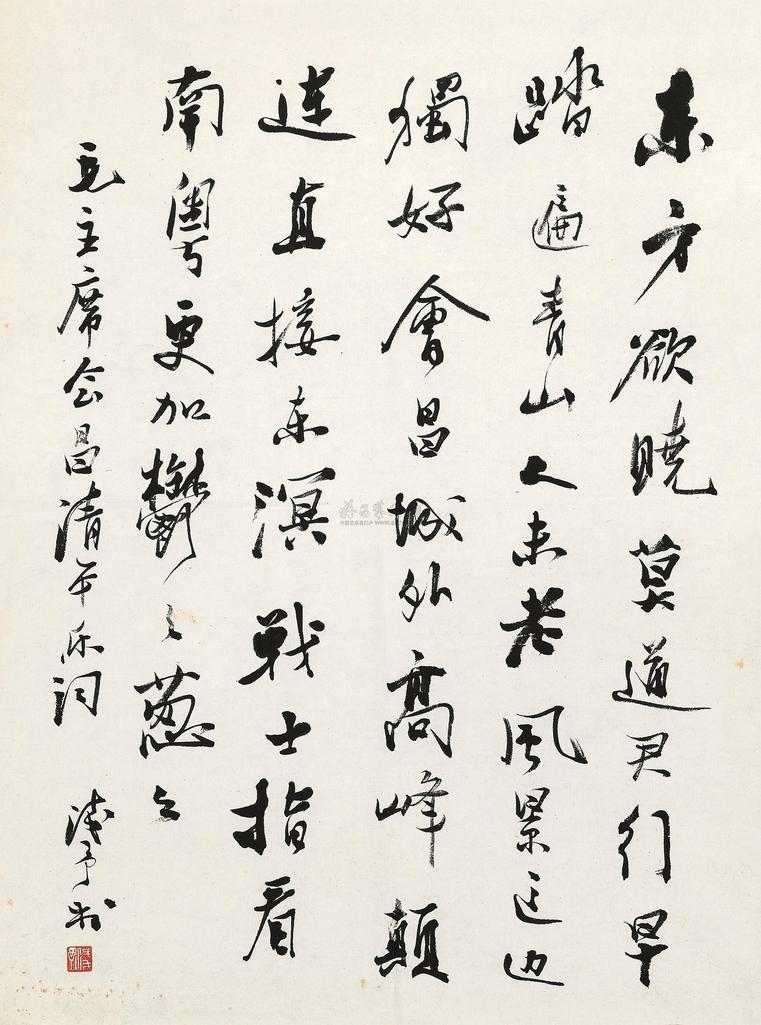 东方欲晓莫道君行早
踏遍青山人未老风景这边
獨好會昌城外高峰顛
连直接东溟战士指看
南粤更加鬱々葱々
毛主席会昌清平乐词 浅予书